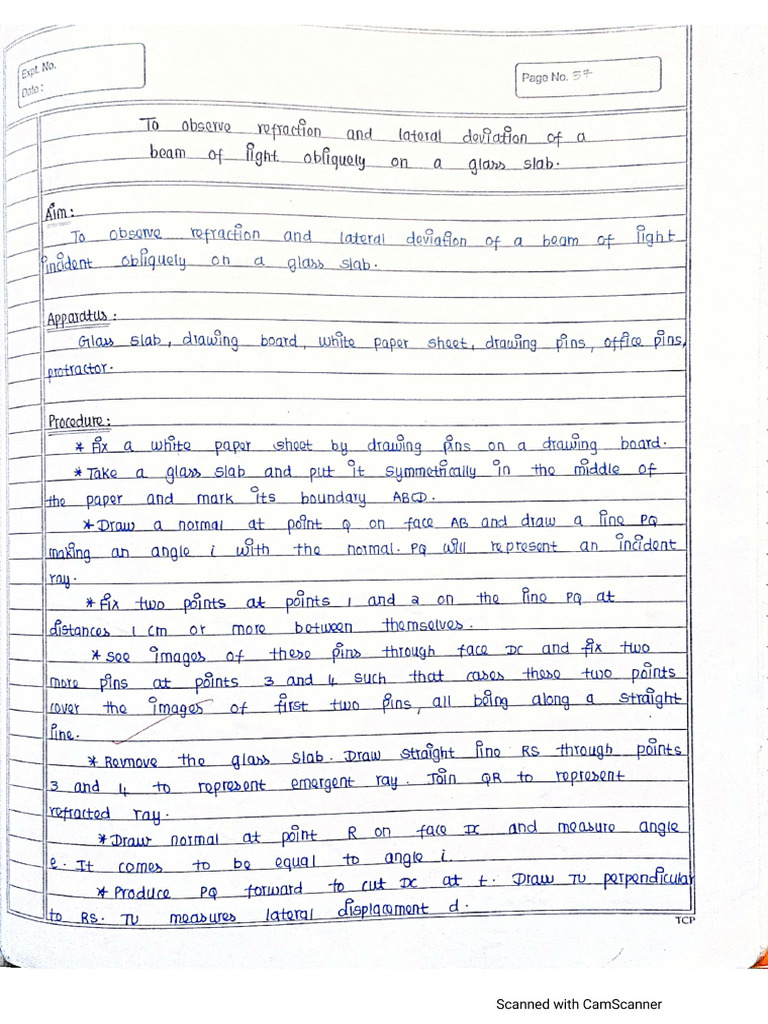 Expt. No.
Page No. 57
Date :
To observe refraction and lateral deviation of a
beam of light obliquely on a glass slab.
Aim:
To observe refraction and lateral deviation of a beam of light
incident obliquely on a glass slab.
Apparatus :
Glass slab, drawing board, white paper sheet, drawing pins, office pins,
protractor.
Procedure:
* Fix a white paper sheet by drawing pins on a drawing board.
* Take a glass slab and put it symmetrically in the middle of
the paper and mark its boundary ABCD.
* Draw a normal at point Q on face AB and draw a line PQ
making an angle i with the normal. PQ will represent an incident
ray.
* Fix two points at points 1 and 2 on the line PQ at
distances 1 cm or more between themselves.
* See images of these pins through face DC and fix two
more pins at points 3 and 4 such that cases these two points
cover the images of first two pins, all being along a straight
line.
* Remove the glass slab. Draw straight line RS through points
3 and 4 to represent emergent ray. Join QR to represent
refracted ray.
* Draw normal at point R on face DC and measure angle
e. It comes to be equal to angle i.
* Produce PQ forward to cut DC at t. Draw TU perpendicular
to RS. TU measures lateral displacement d.
TCP
Scanned with CamScanner